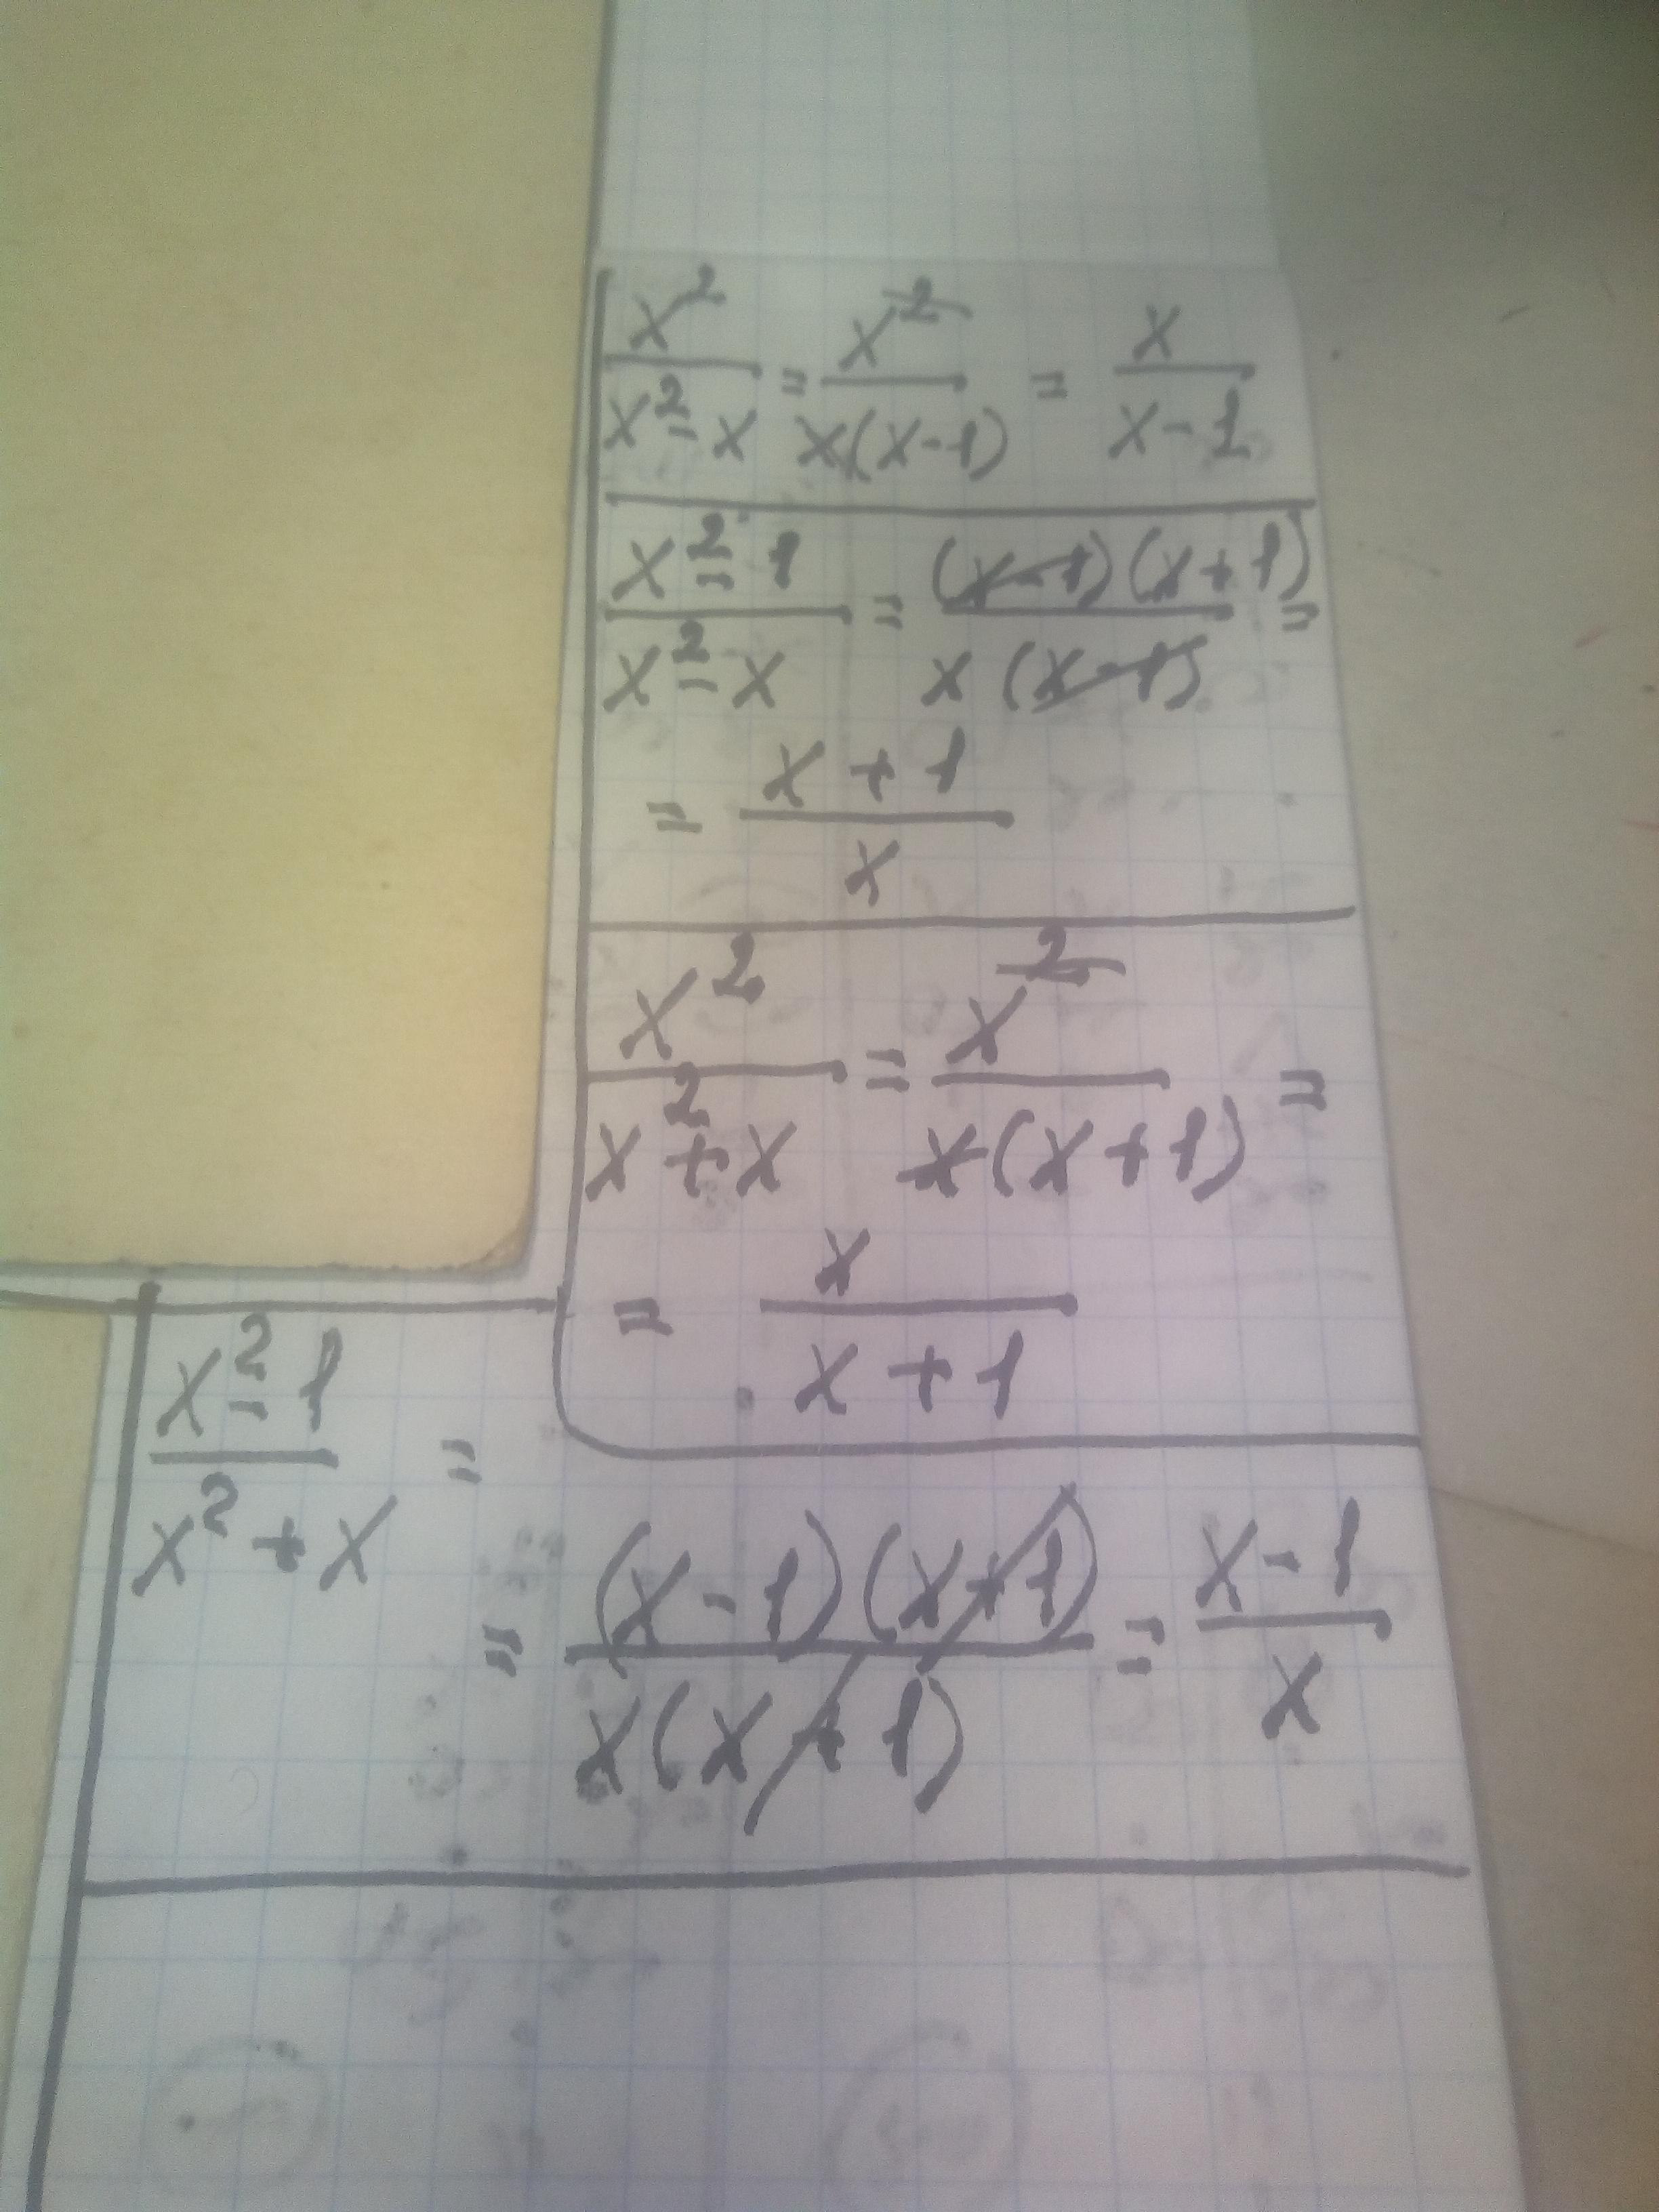 x²/(x² - x) = x²/(x(x-1)) = x/(x-1)
(x² - 1)/(x² - x) = ((x-1)(x+1))/(x(x-1)) =
= (x+1)/x
x²/(x² + x) = x²/(x(x+1)) =
= x/(x+1)
(x² - 1)/(x² + x) =
= ((x-1)(x+1))/(x(x+1)) = (x-1)/x